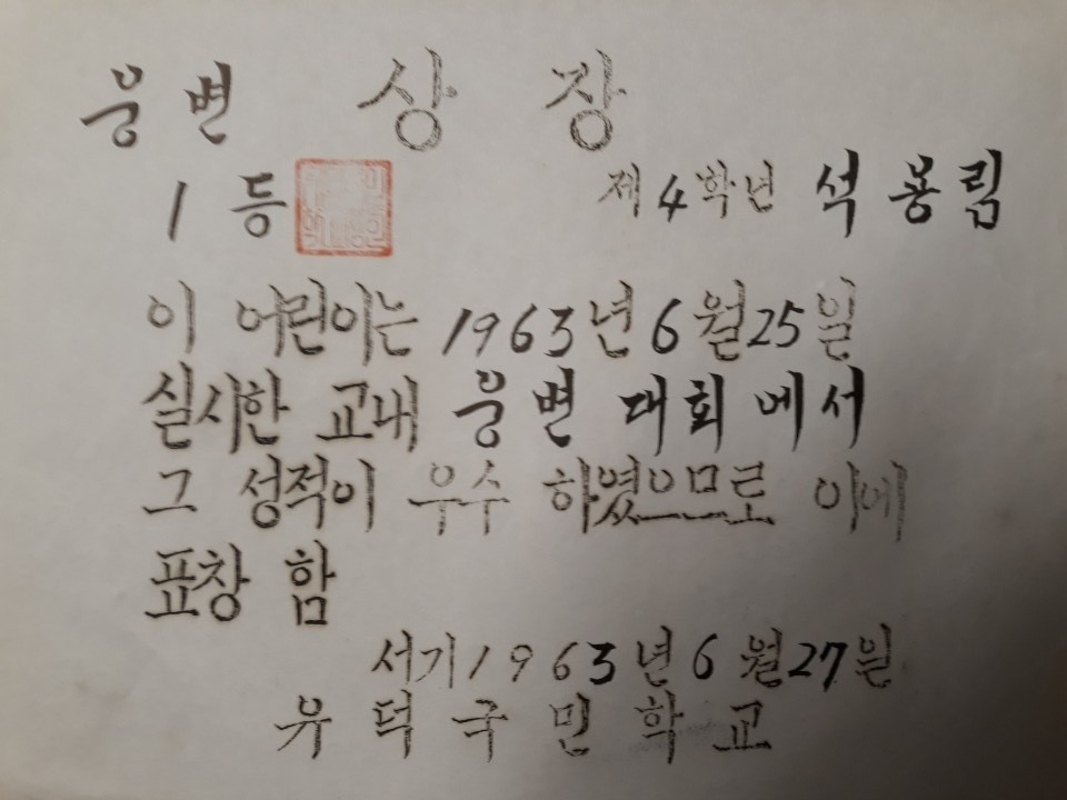 웅변 상장
1등 제4학년 석용림
이 어린이는 1963년 6월 25일
실시한 교내 웅변 대회에서
그 성적이 우수 하였으므로 이에
표창 함
서기 1963년 6월 27일
유덕국민학교